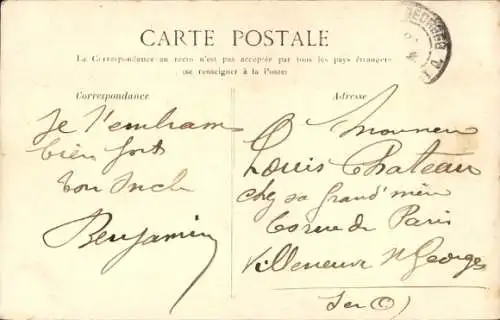 CARTE POSTALE
La Correspondance au recto n'est pas acceptée par tous les pays étrangers
(se renseigner à la Poste)
Correspondance
Adresse
Je t'embrasse
bien fort
ton Oncle
Benjamin
Monsieur
Louis Chateau
chez sa grand'mère
rue de Paris
Villeneuve St Georges
(S et O)
GEORGES